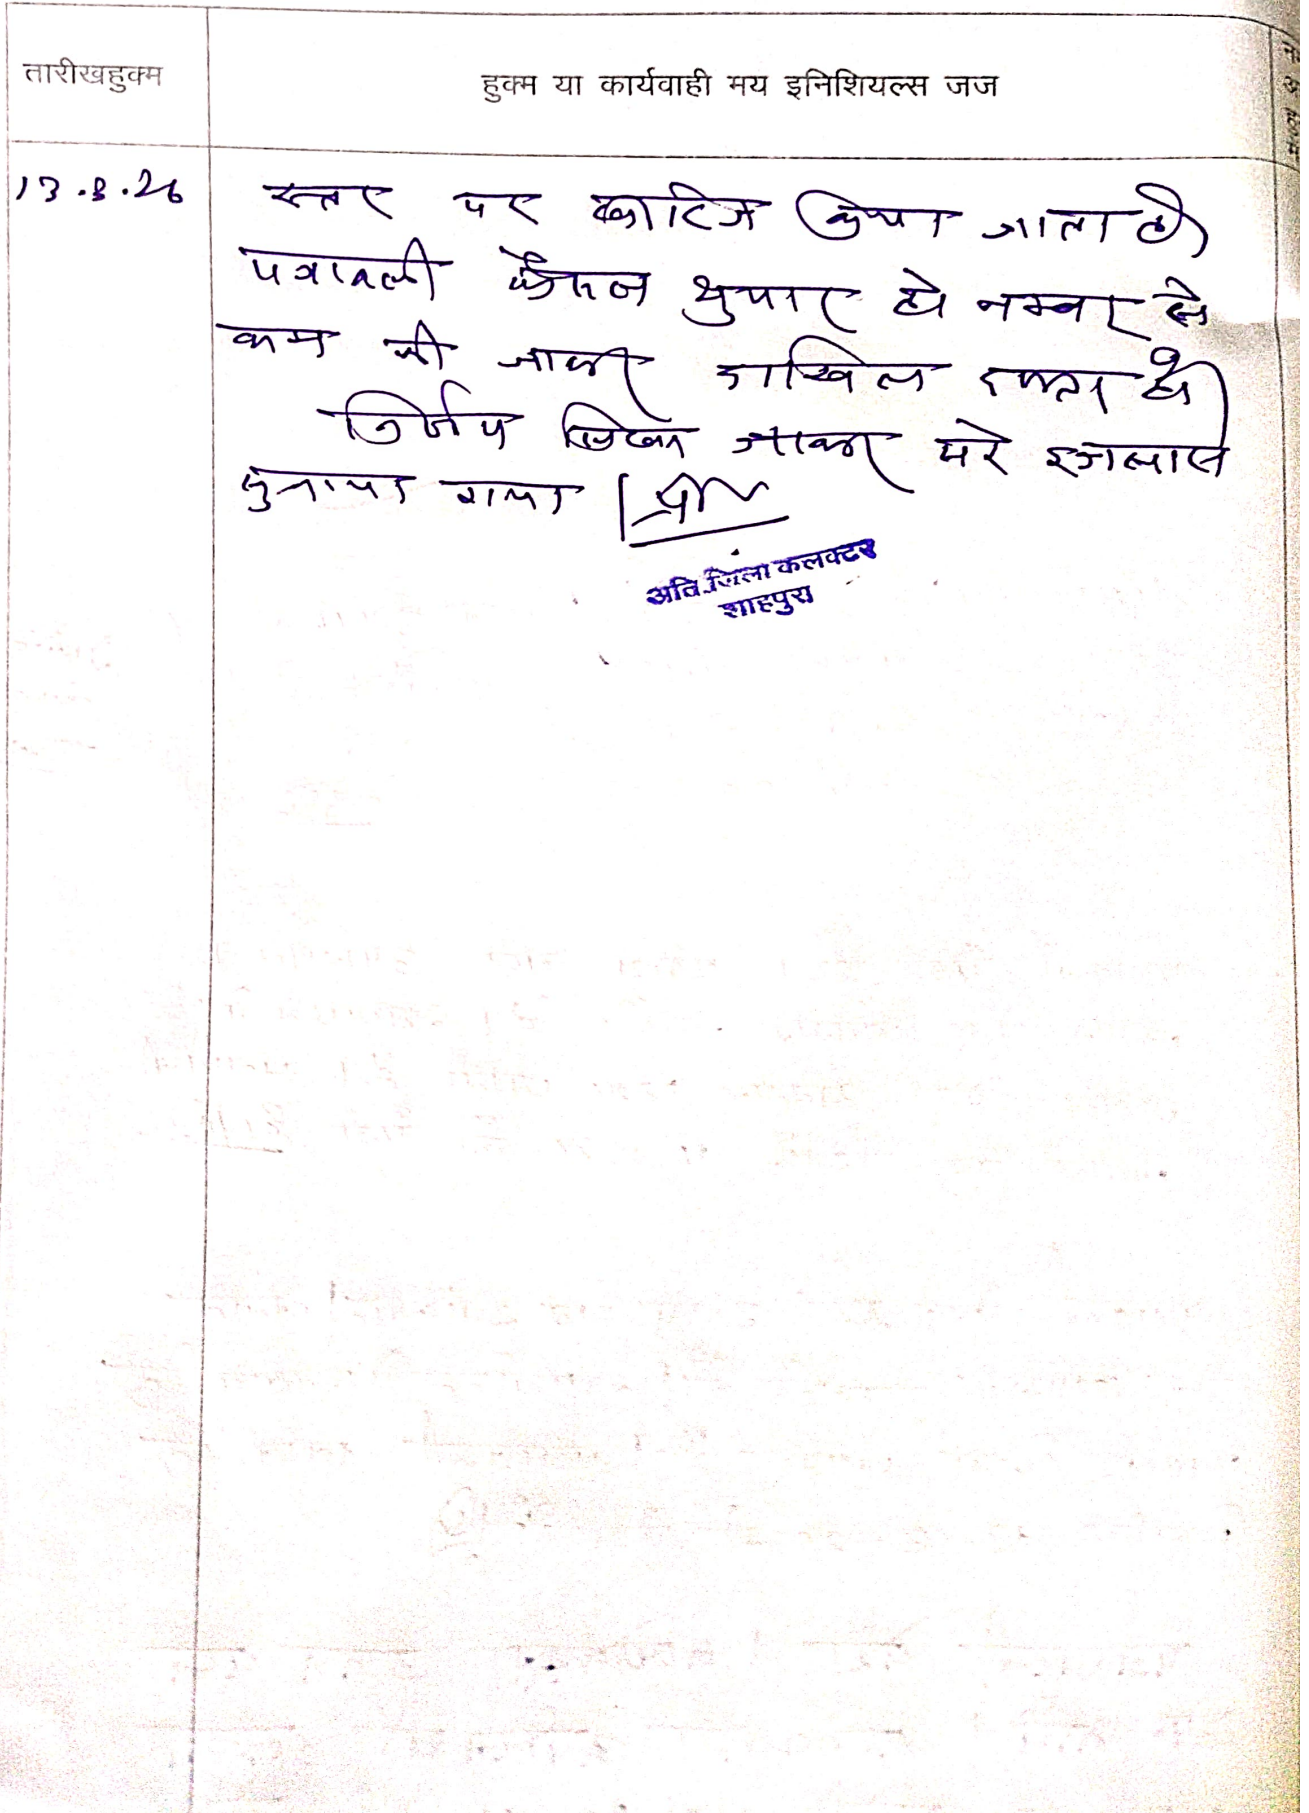 तारीखहुक्म
हुक्म या कार्यवाही मय इनिशियल्स जज
13.3.26
स्तर पर खारिज किया जाता है।
पत्रावली फैसल शुमार हो नम्बर से
कम की जाकर दाखिल दफ्तर हो
निर्णय लिखा जाकर सरे इजलास
सुनाया गया।
अति. जिला कलक्टर
शाहपुरा